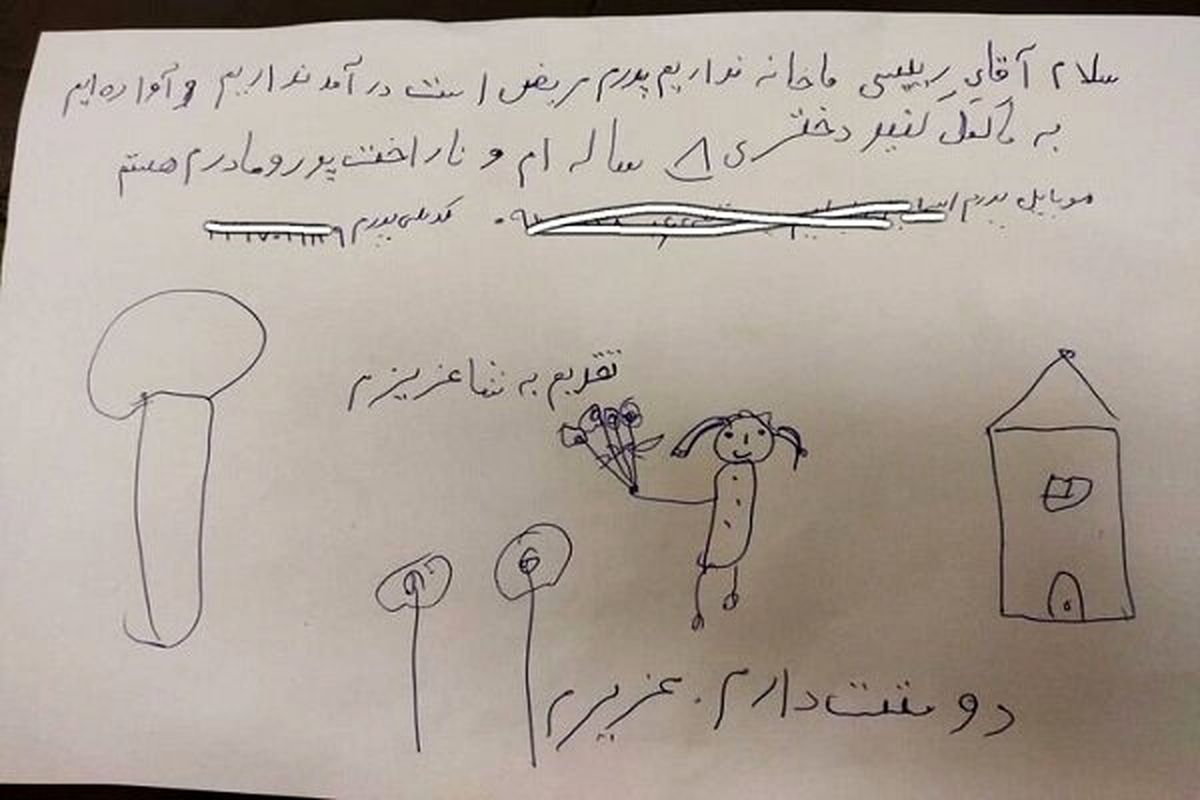 سلام آقای رییسی ما خانه نداریم پدرم مریض است در آمد نداریم و آواره ایم
به ما کمک کنید دختری ۸ ساله ام و ناراحت پدر و مادرم هستم
موبایل پدرم
کدملی پدرم
تقدیم به شما عزیزم
دوستت دارم. عزیزم